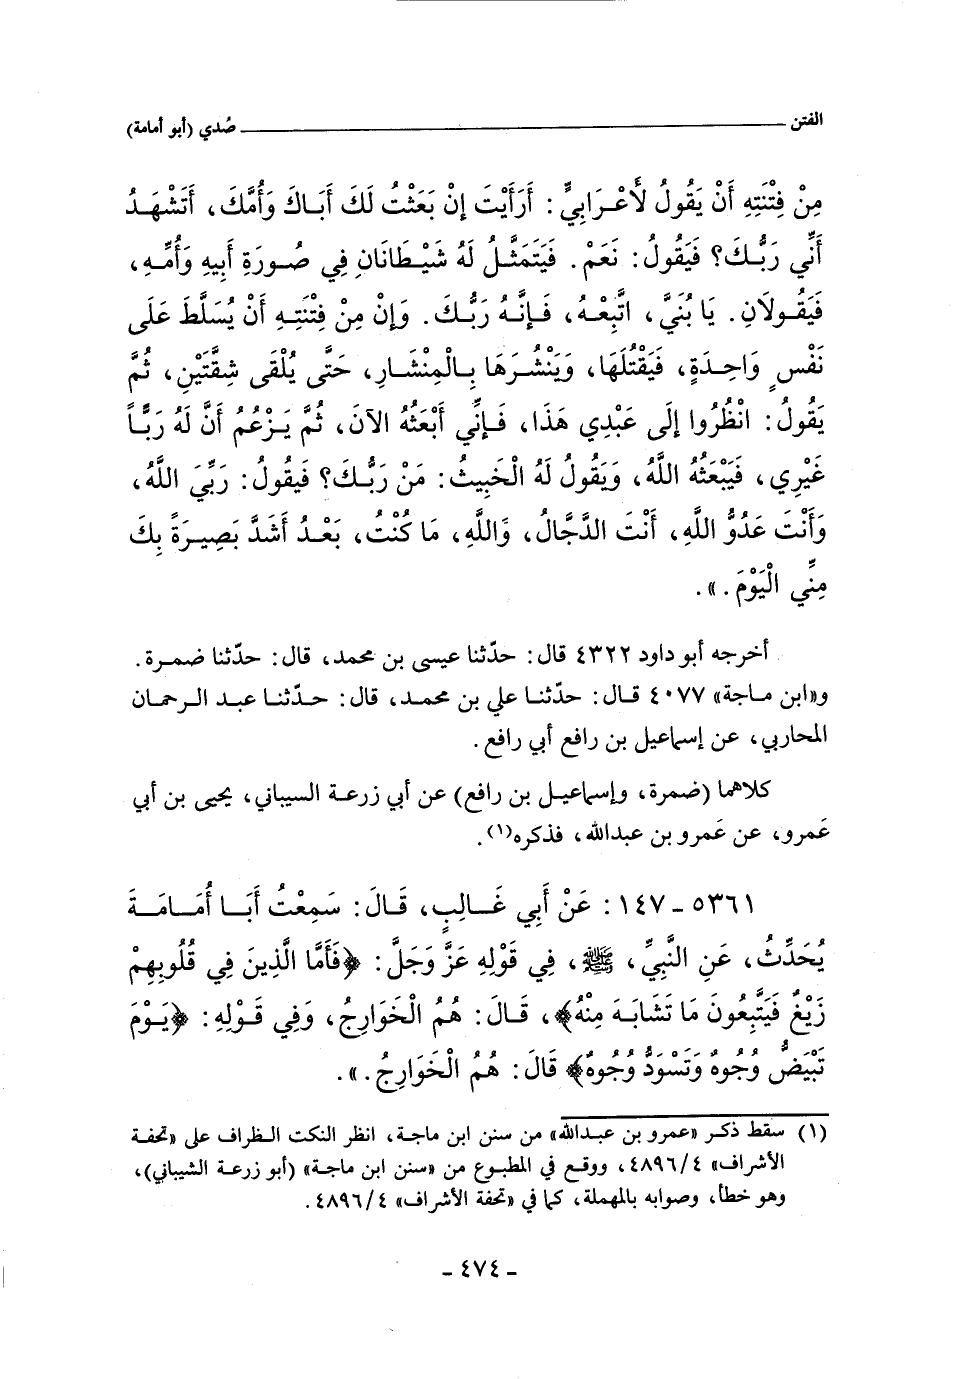 الفتن ــــــ صُدي (أبو أمامة)
مِنْ فِتْنَتِهِ أَنْ يَقُولُ لأَعْرَابِيٍّ: أَرَأَيْتَ إِنْ بَعَثْتُ لَكَ أَبَاكَ وَأُمَّكَ، أَتَشْهَدُ
أَنِّي رَبُّكَ؟ فَيَقُولُ: نَعَمْ. فَيَتَمَثَّلُ لَهُ شَيْطَانَانِ فِي صُورَةِ أَبِيهِ وَأُمِّهِ،
فَيَقُولَانِ. يَا بُنَيَّ، اتَّبِعْهُ، فَإِنَّهُ رَبُّكَ. وَإِنْ مِنْ فِتْنَتِهِ أَنْ يُسَلَّطَ عَلَى
نَفْسٍ وَاحِدَةٍ، فَيَقْتُلَهَا، وَيَنْشُرَهَا بِالْمِنْشَارِ، حَتَّى يُلْقَى شِقَّتَيْنِ، ثُمَّ
يَقُولُ: انْظُرُوا إِلَى عَبْدِي هَذَا، فَإِنِّي أَبْعَثُهُ الآنَ، ثُمَّ يَزْعُمُ أَنَّ لَهُ رَبًّا
غَيْرِي، فَيَبْعَثُهُ اللَّهُ، وَيَقُولُ لَهُ الْخَبِيثُ: مَنْ رَبُّكَ؟ فَيَقُولُ: رَبِّيَ اللَّهُ،
وَأَنْتَ عَدُوُّ اللَّهِ، أَنْتَ الدَّجَّالُ، وَاللَّهِ، مَا كُنْتُ، بَعْدُ أَشَدَّ بَصِيرَةً بِكَ
مِنِّي الْيَوْمَ.».
أخرجه أبو داود ٤٣٢٢ قال: حدّثنا عيسى بن محمد، قال: حدّثنا ضمرة.
و«ابن ماجة» ٤٠٧٧ قال: حدّثنا علي بن محمد، قال: حدّثنا عبد الرحمان
المحاربي، عن إسماعيل بن رافع أبي رافع.
كلاهما (ضمرة، وإسماعيل بن رافع) عن أبي زرعة السيباني، يحيى بن أبي
عَمرو، عن عَمرو بن عبدالله، فذكره(١).
٥٣٦١ - ١٤٧: عَنْ أَبِي غَالِبٍ، قَالَ: سَمِعْتُ أَبَا أُمَامَةَ
يُحَدِّثُ، عَنِ النَّبِيِّ، ﷺ، فِي قَوْلِهِ عَزَّ وَجَلَّ: ﴿فَأَمَّا الَّذِينَ فِي قُلُوبِهِمْ
زَيْغٌ فَيَتَّبِعُونَ مَا تَشَابَهَ مِنْهُ﴾، قَالَ: هُمُ الْخَوَارِجُ، وَفِي قَوْلِهِ: ﴿يَوْمَ
تَبْيَضُّ وُجُوهٌ وَتَسْوَدُّ وُجُوهٌ﴾ قَالَ: هُمُ الْخَوَارِجُ.».
(١) سقط ذكر «عمرو بن عبدالله» من سنن ابن ماجة، انظر النكت الظراف على «تحفة
الأشراف» ٤/٤٨٩٦، ووقع في المطبوع من «سنن ابن ماجة» (أبو زرعة الشيباني)،
وهو خطأ، وصوابه بالمهملة، كما في «تحفة الأشراف» ٤/٤٨٩٦.
- ٤٧٤ -